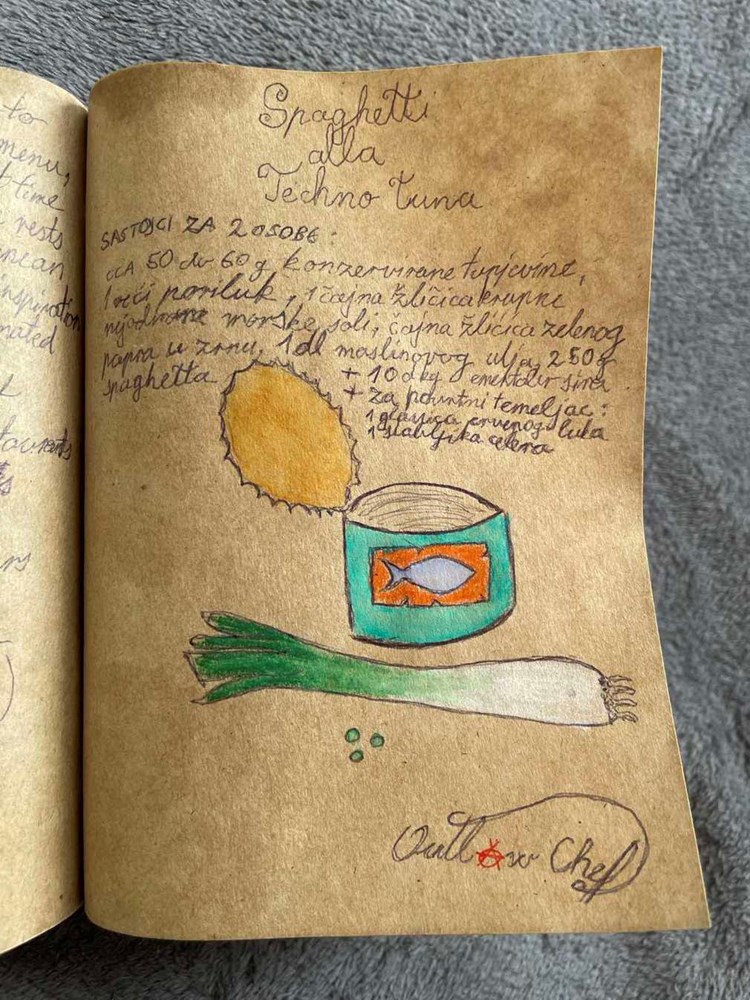 to
menu,
time
rests
inspiration
Spaghetti
alla
Techno Tuna
SASTOJCI ZA 2 OSOBE:
CCA 50 do 60 g konzervirane tunjevine,
1 veći poriluk, 1 čajna žličica krupne
morske soli, čajna žličica zelenog
papra u zrnu, 1 dl maslinovog ulja, 250 g
spaghetta
+ 10 dkg ementaler sira
+ za povrtni temeljac:
1 glavica crvenog luka
1 stabljika celera
Outlaw Chef